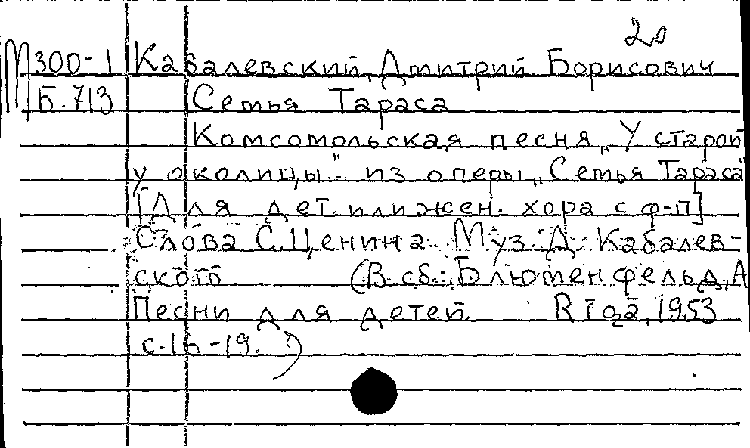 20
М 300-1 Кабалевский, Дмитрий Борисович
Б. 713 Семья Тараса
Комсомольская песня „У старой
у околицы" из оперы „Семья Тараса"
[Для дет. или жен. хора с ф-п]
Слова С. Ценина. Муз. Д. Кабалев-
ского (В сб.: Блюменфельд, А
Песни для детей. Rīgā, 1953
с. 16-19.)